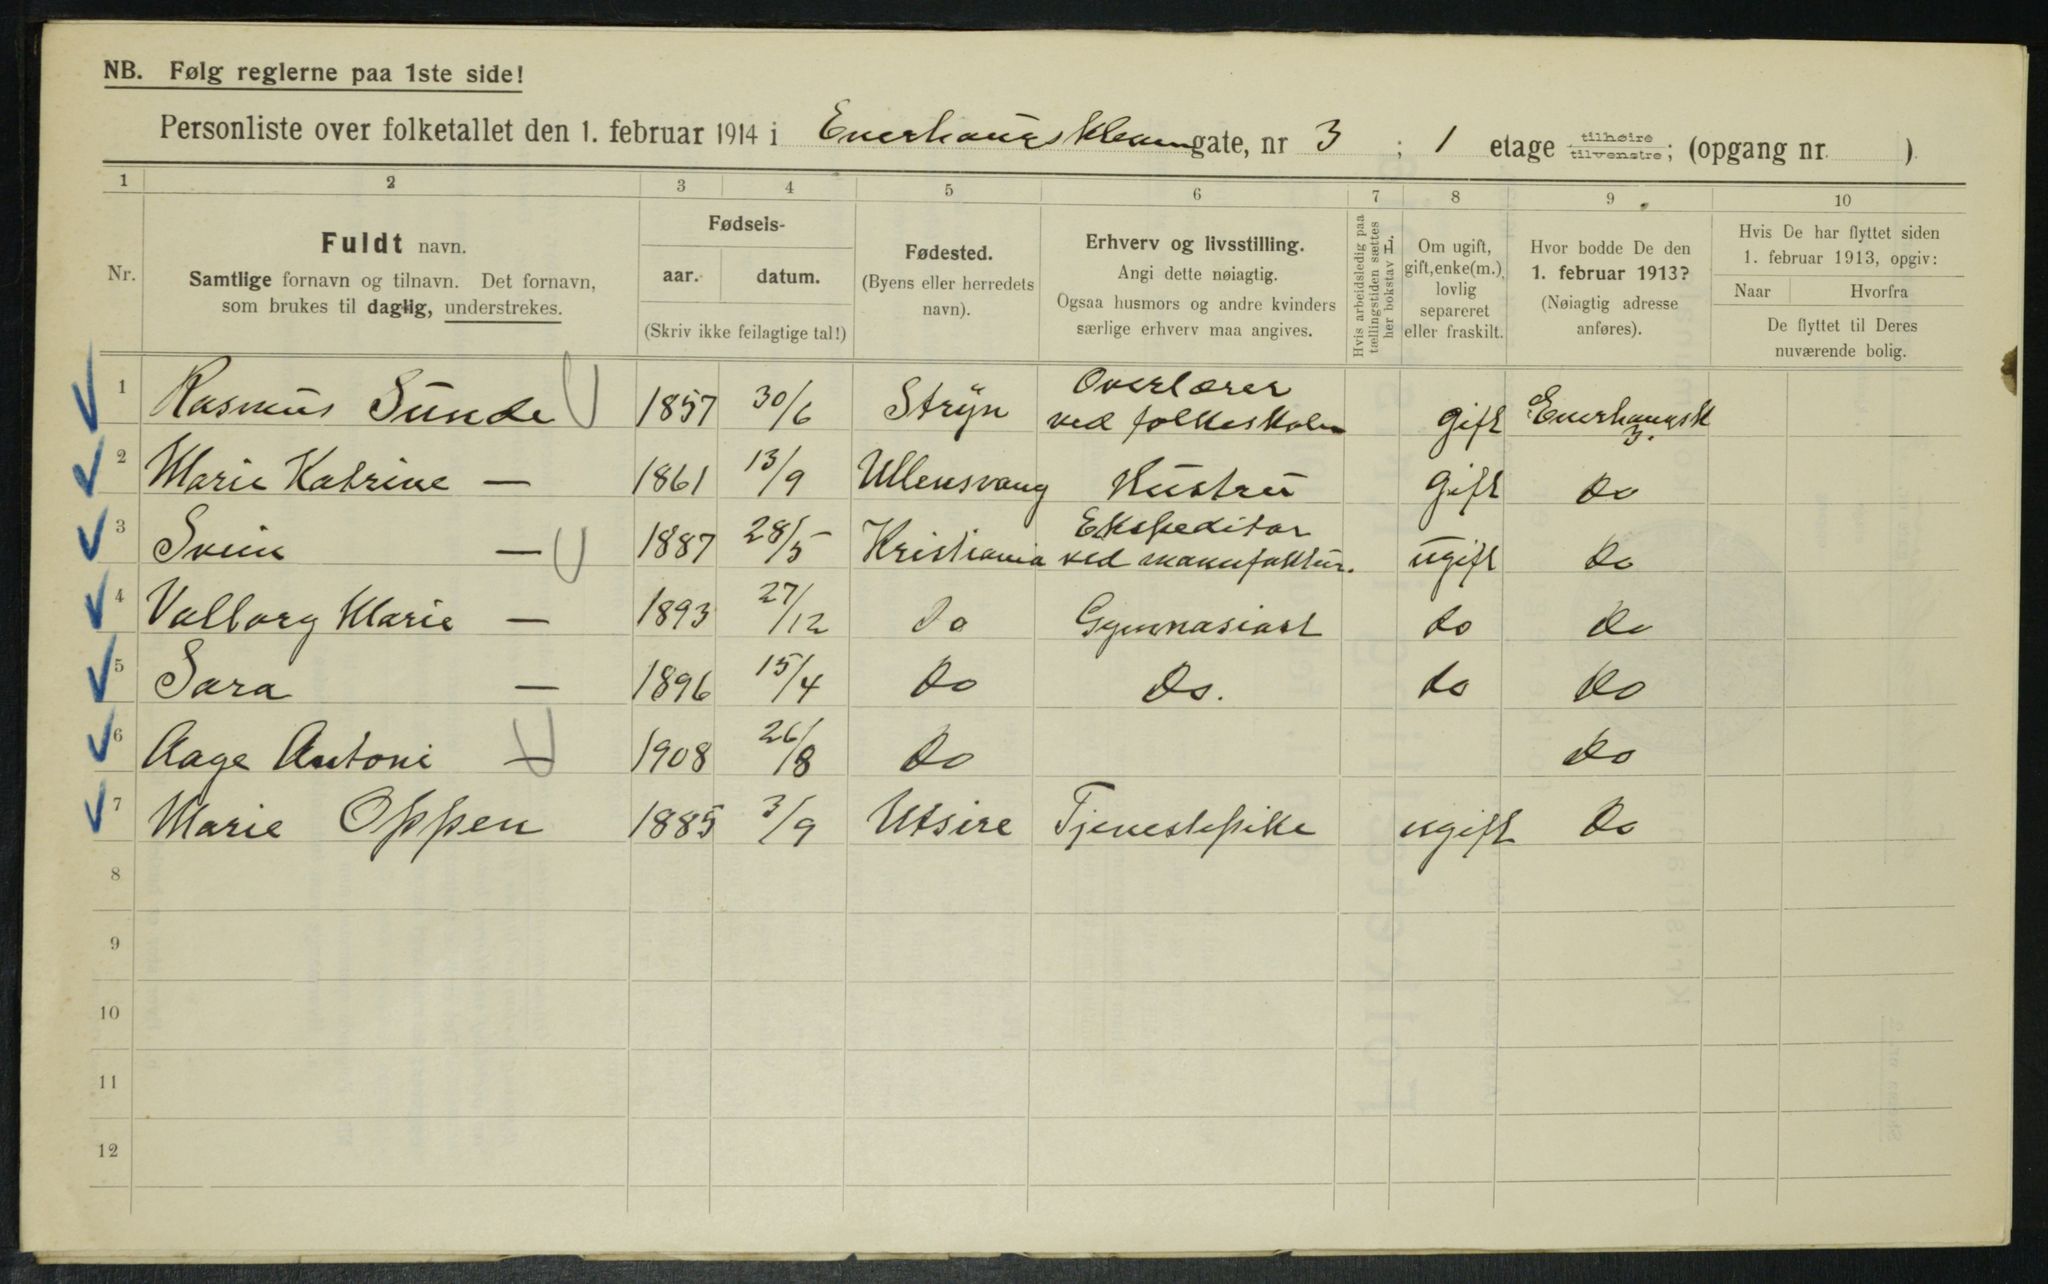 NB. Følg reglerne paa 1ste side!
Personliste over folketallet den 1. februar 1914 i Enerhaugskleven gate, nr 3 ; 1 etage tilhøire tilvenstre; (opgang nr. )
1 2 3 4 5 6 7 8 9 10
Nr.
Fuldt navn.
Samtlige fornavn og tilnavn. Det fornavn,
som brukes til daglig, understrekes.
Fødsels-
aar. datum.
(Skriv ikke feilagtige tal!)
Fødested.
(Byens eller herredets
navn).
Erhverv og livsstilling.
Angi dette nøiagtig.
Ogsaa husmors og andre kvinders
særlige erhverv maa angives.
Hvis arbeidsledig paa
tællingstiden sættes
her bokstav L.
Om ugift,
gift, enke(m.),
lovlig
separeret
eller fraskilt.
Hvor bodde De den
1. februar 1913?
(Nøiagtig adresse
anføres).
Hvis De har flyttet siden
1. februar 1913, opgiv:
Naar Hvorfra
De flyttet til Deres
nuværende bolig.
1 Rasmus Sunde 1857 30/6 Stryn Overlærer ved folkeskolen gift Enerhaugskl 3.
2 Marie Katrine — 1861 13/9 Ullensvang Hustru gift do
3 Svein — 1887 28/5 Kristiania Ekspeditør ved manufaktur. ugift do
4 Valborg Marie — 1893 27/12 do Gymnasiast do do
5 Sara — 1896 15/4 do Do. do do
6 Aage Antoni — 1908 26/8 do do
7 Marie Oppen 1885 3/9 Utsire Tjenestepike ugift do
8
9
10
11
12